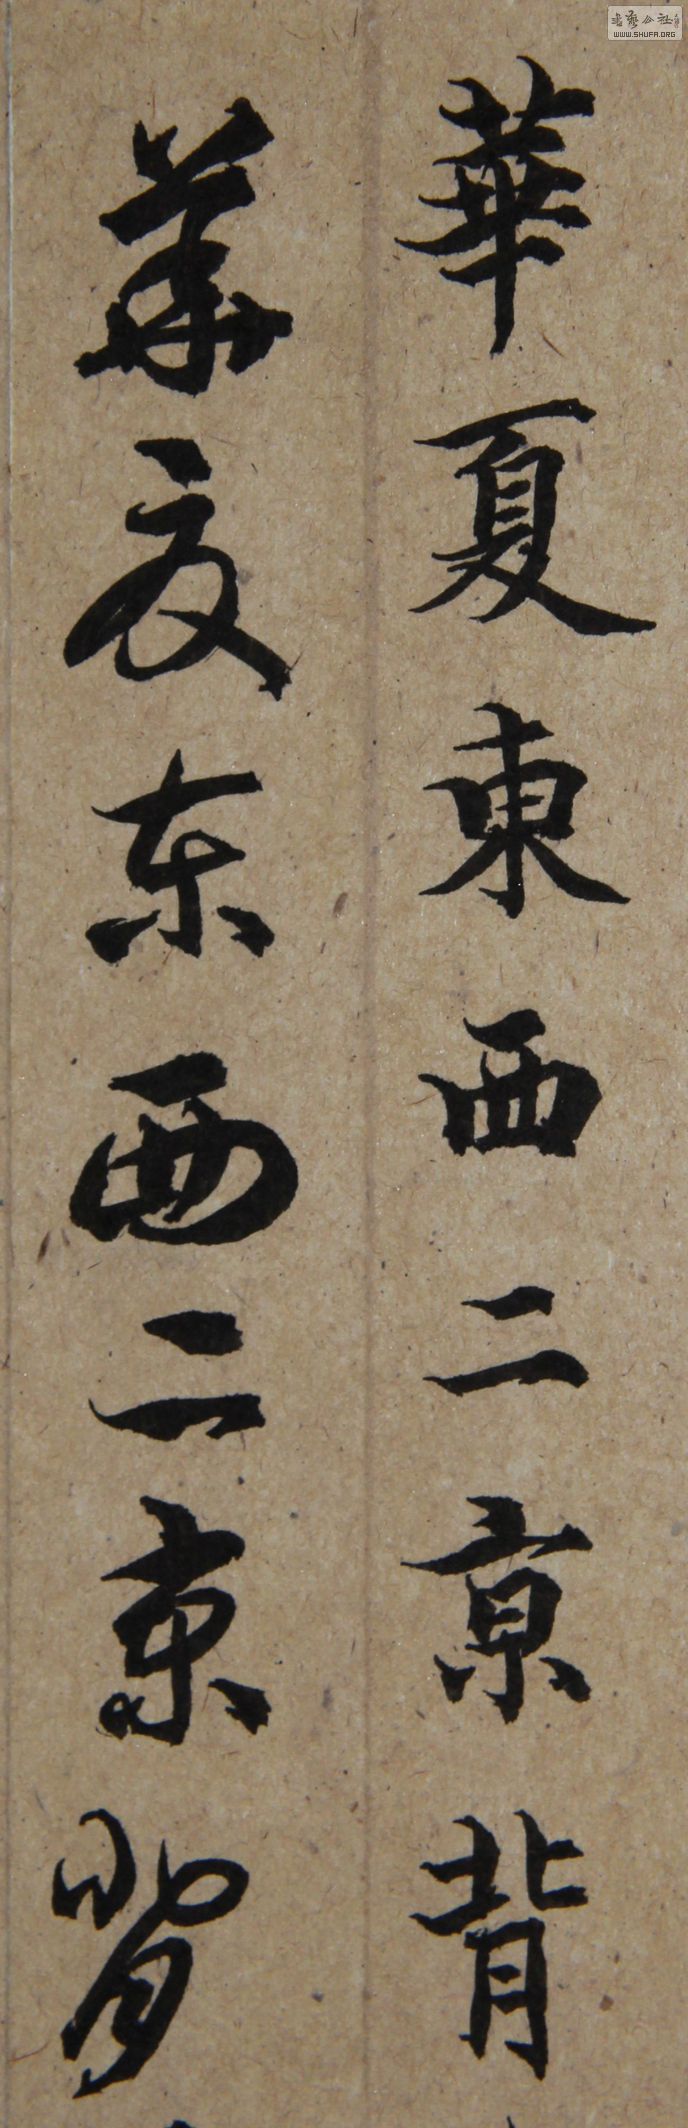 華夏東西二京背
華夏东西二京背
WWW.SHUFA.ORG